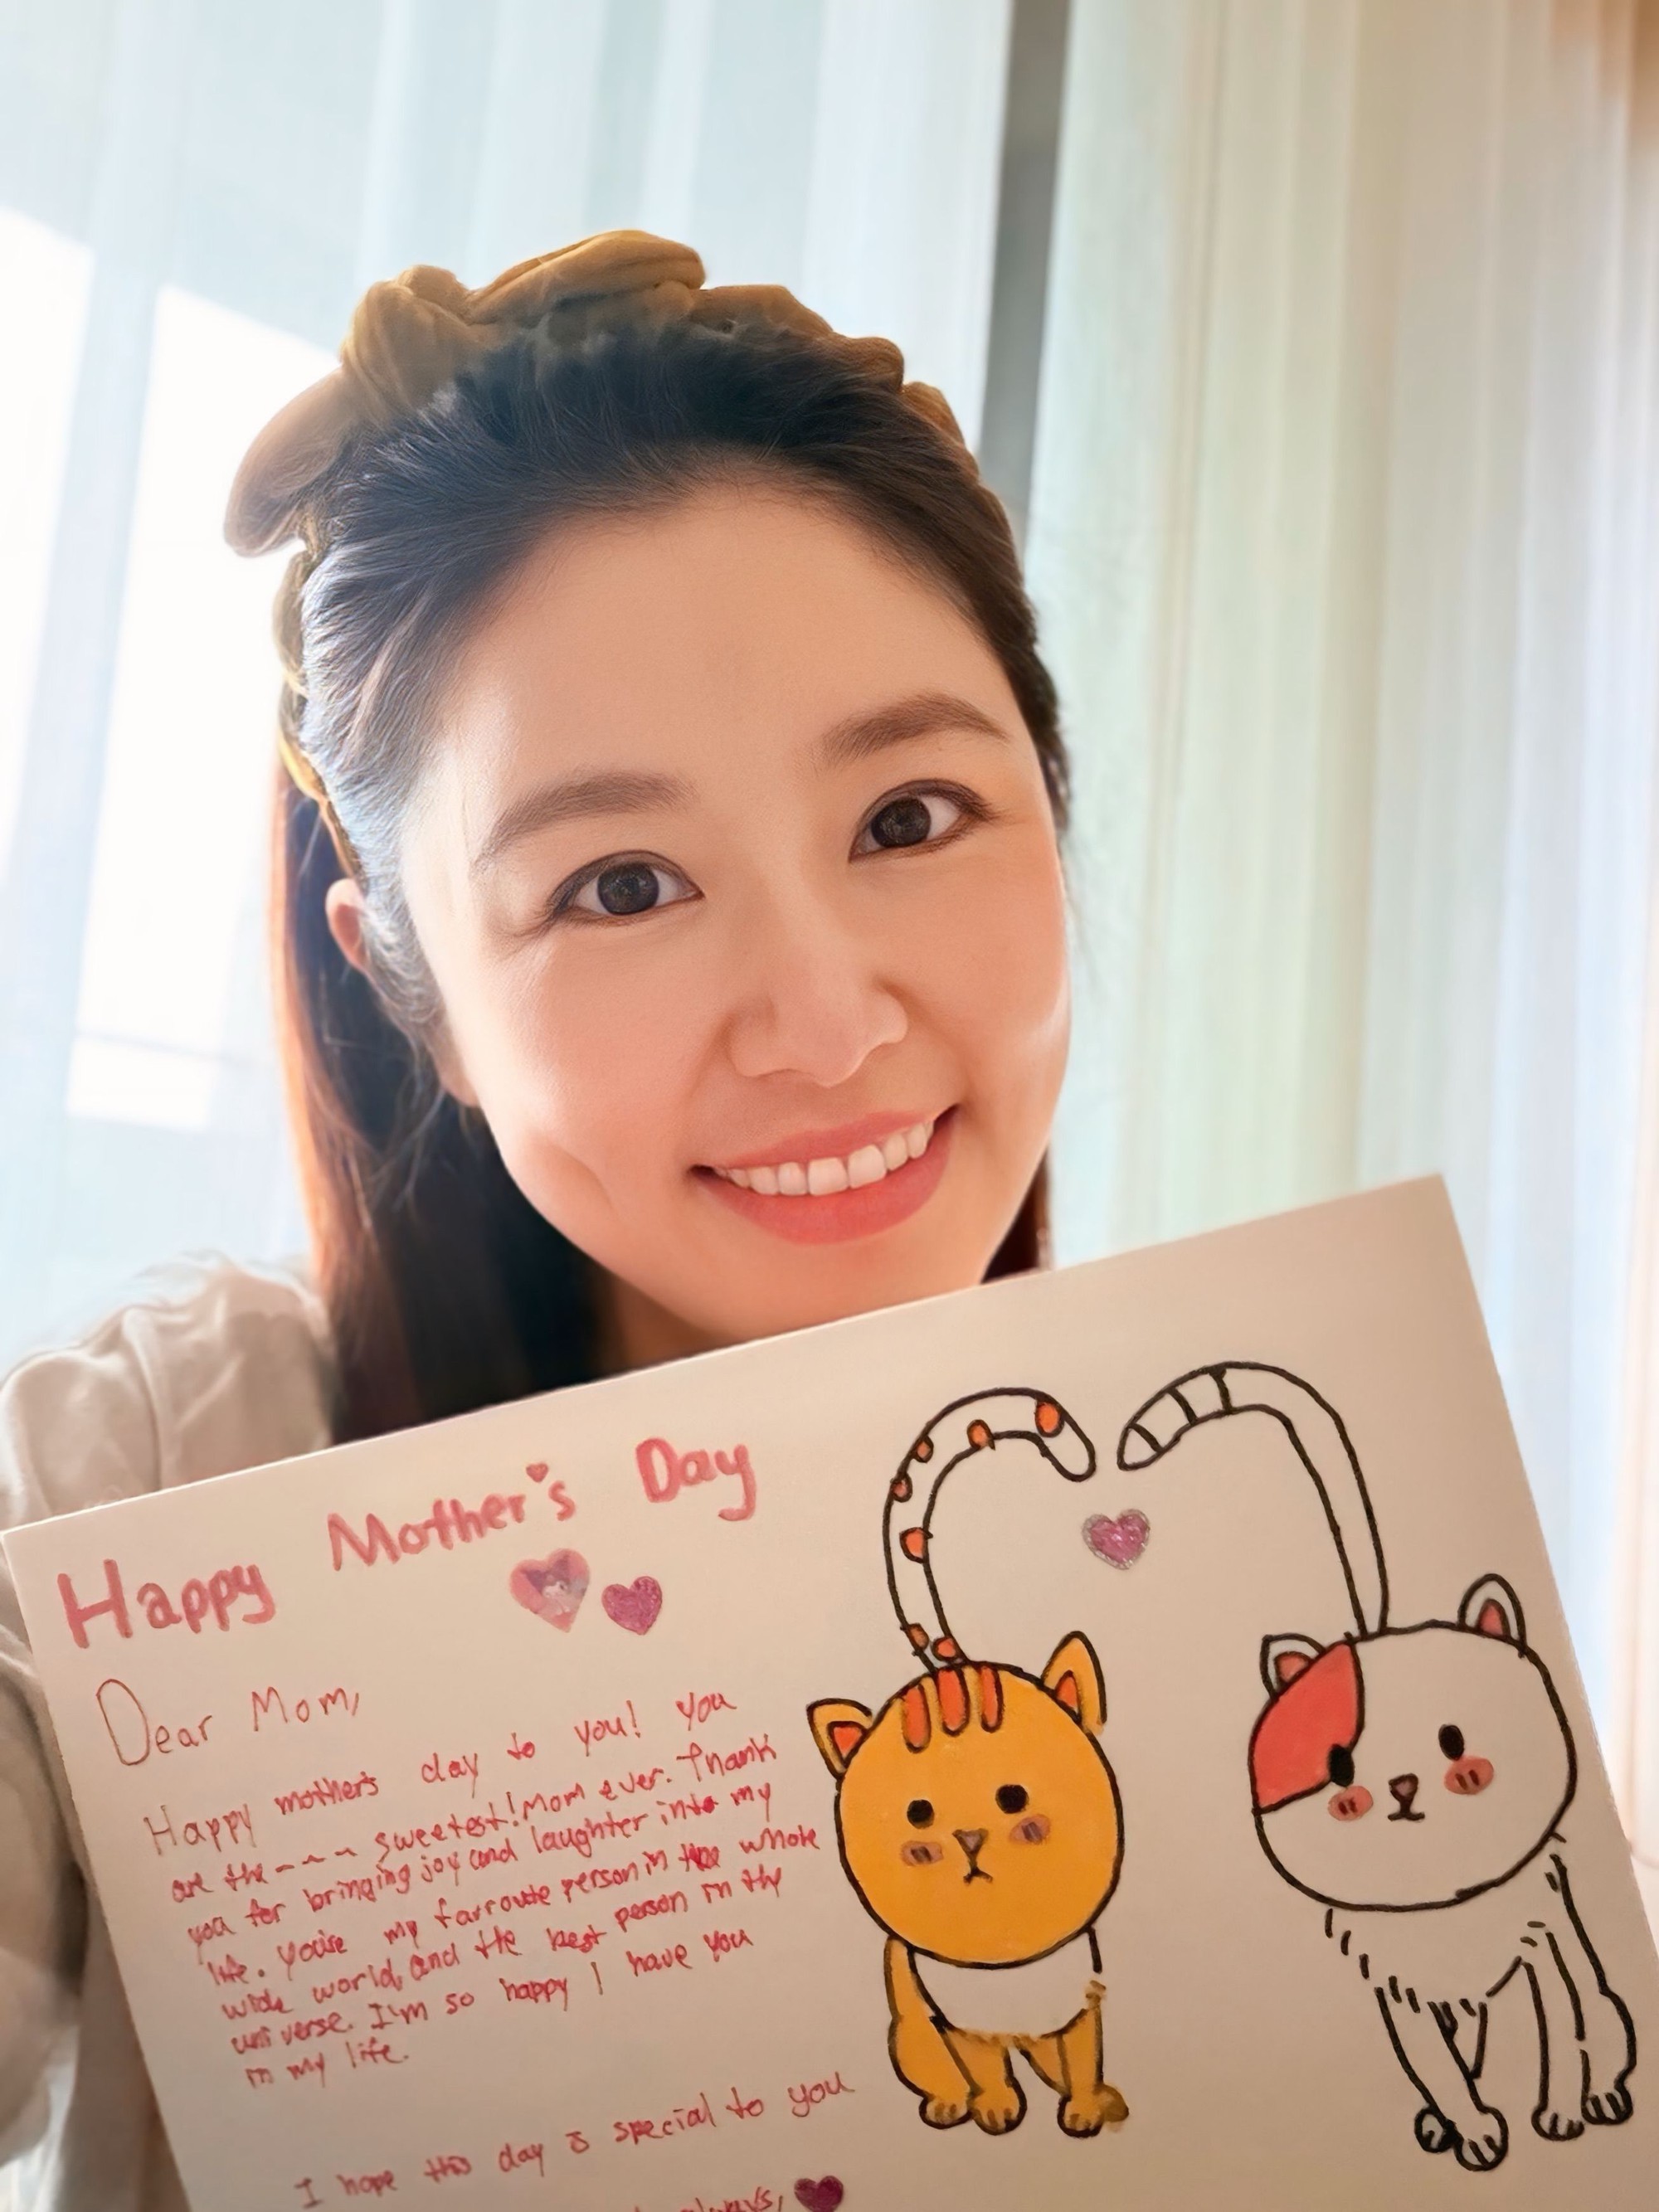 Happy Mother's Day
Dear Mom,
Happy mother's day to you! you
are the ~~~~ sweetest! Mom ever. Thank
you for bringing joy and laughter into my
life. you're my farroute person in the whole
wide world, and the best person in the
universe. I'm so happy I have you
in my life.
I hope this day is special to you
always,